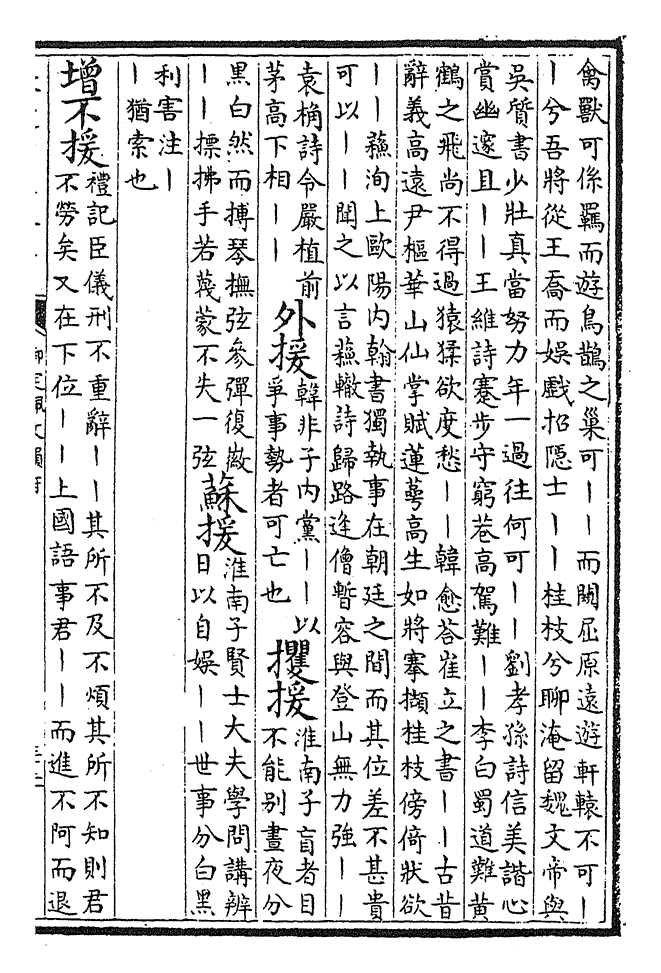 禽獸可係羈而遊鳥鵲之巢可丨丨而闚屈原遠遊軒轅不可丨
丨兮吾將從王喬而娛戲招隱士丨丨桂枝兮聊淹留魏文帝與
吳質書少壯真當努力年一過往何可丨丨劉孝孫詩信美諧心
賞幽邃且丨丨王維詩蹇步守窮巷高駕難丨丨李白蜀道難黃
鶴之飛尚不得過猿猱欲度愁丨丨韓愈荅崔立之書丨丨古昔
辭義高遠尹樞華山仙掌賦蓮蕚高生如將搴擷桂枝傍倚狀欲
丨丨蘓洵上歐陽內翰書獨執事在朝廷之間而其位差不甚貴
可以丨丨聞之以言蘓轍詩歸路逢僧暫容與登山無力強丨丨
袁桷詩令嚴植前
茅高下相丨丨
外援
韓非子內黨丨丨以
爭事勢者可亡也
攫援
淮南子盲者目
不能別晝夜分
黑白然而搏琴撫弦參彈復徽
丨丨摽拂手若蔑蒙不失一弦
蘇援
淮南子賢士大夫學問講辨
日以自娛丨丨世事分白黑
利害注丨
丨猶索也
增不援
禮記臣儀刑不重辭丨丨其所不及不煩其所不知則君
不勞矣又在下位丨丨上國語事君丨丨而進不阿而退